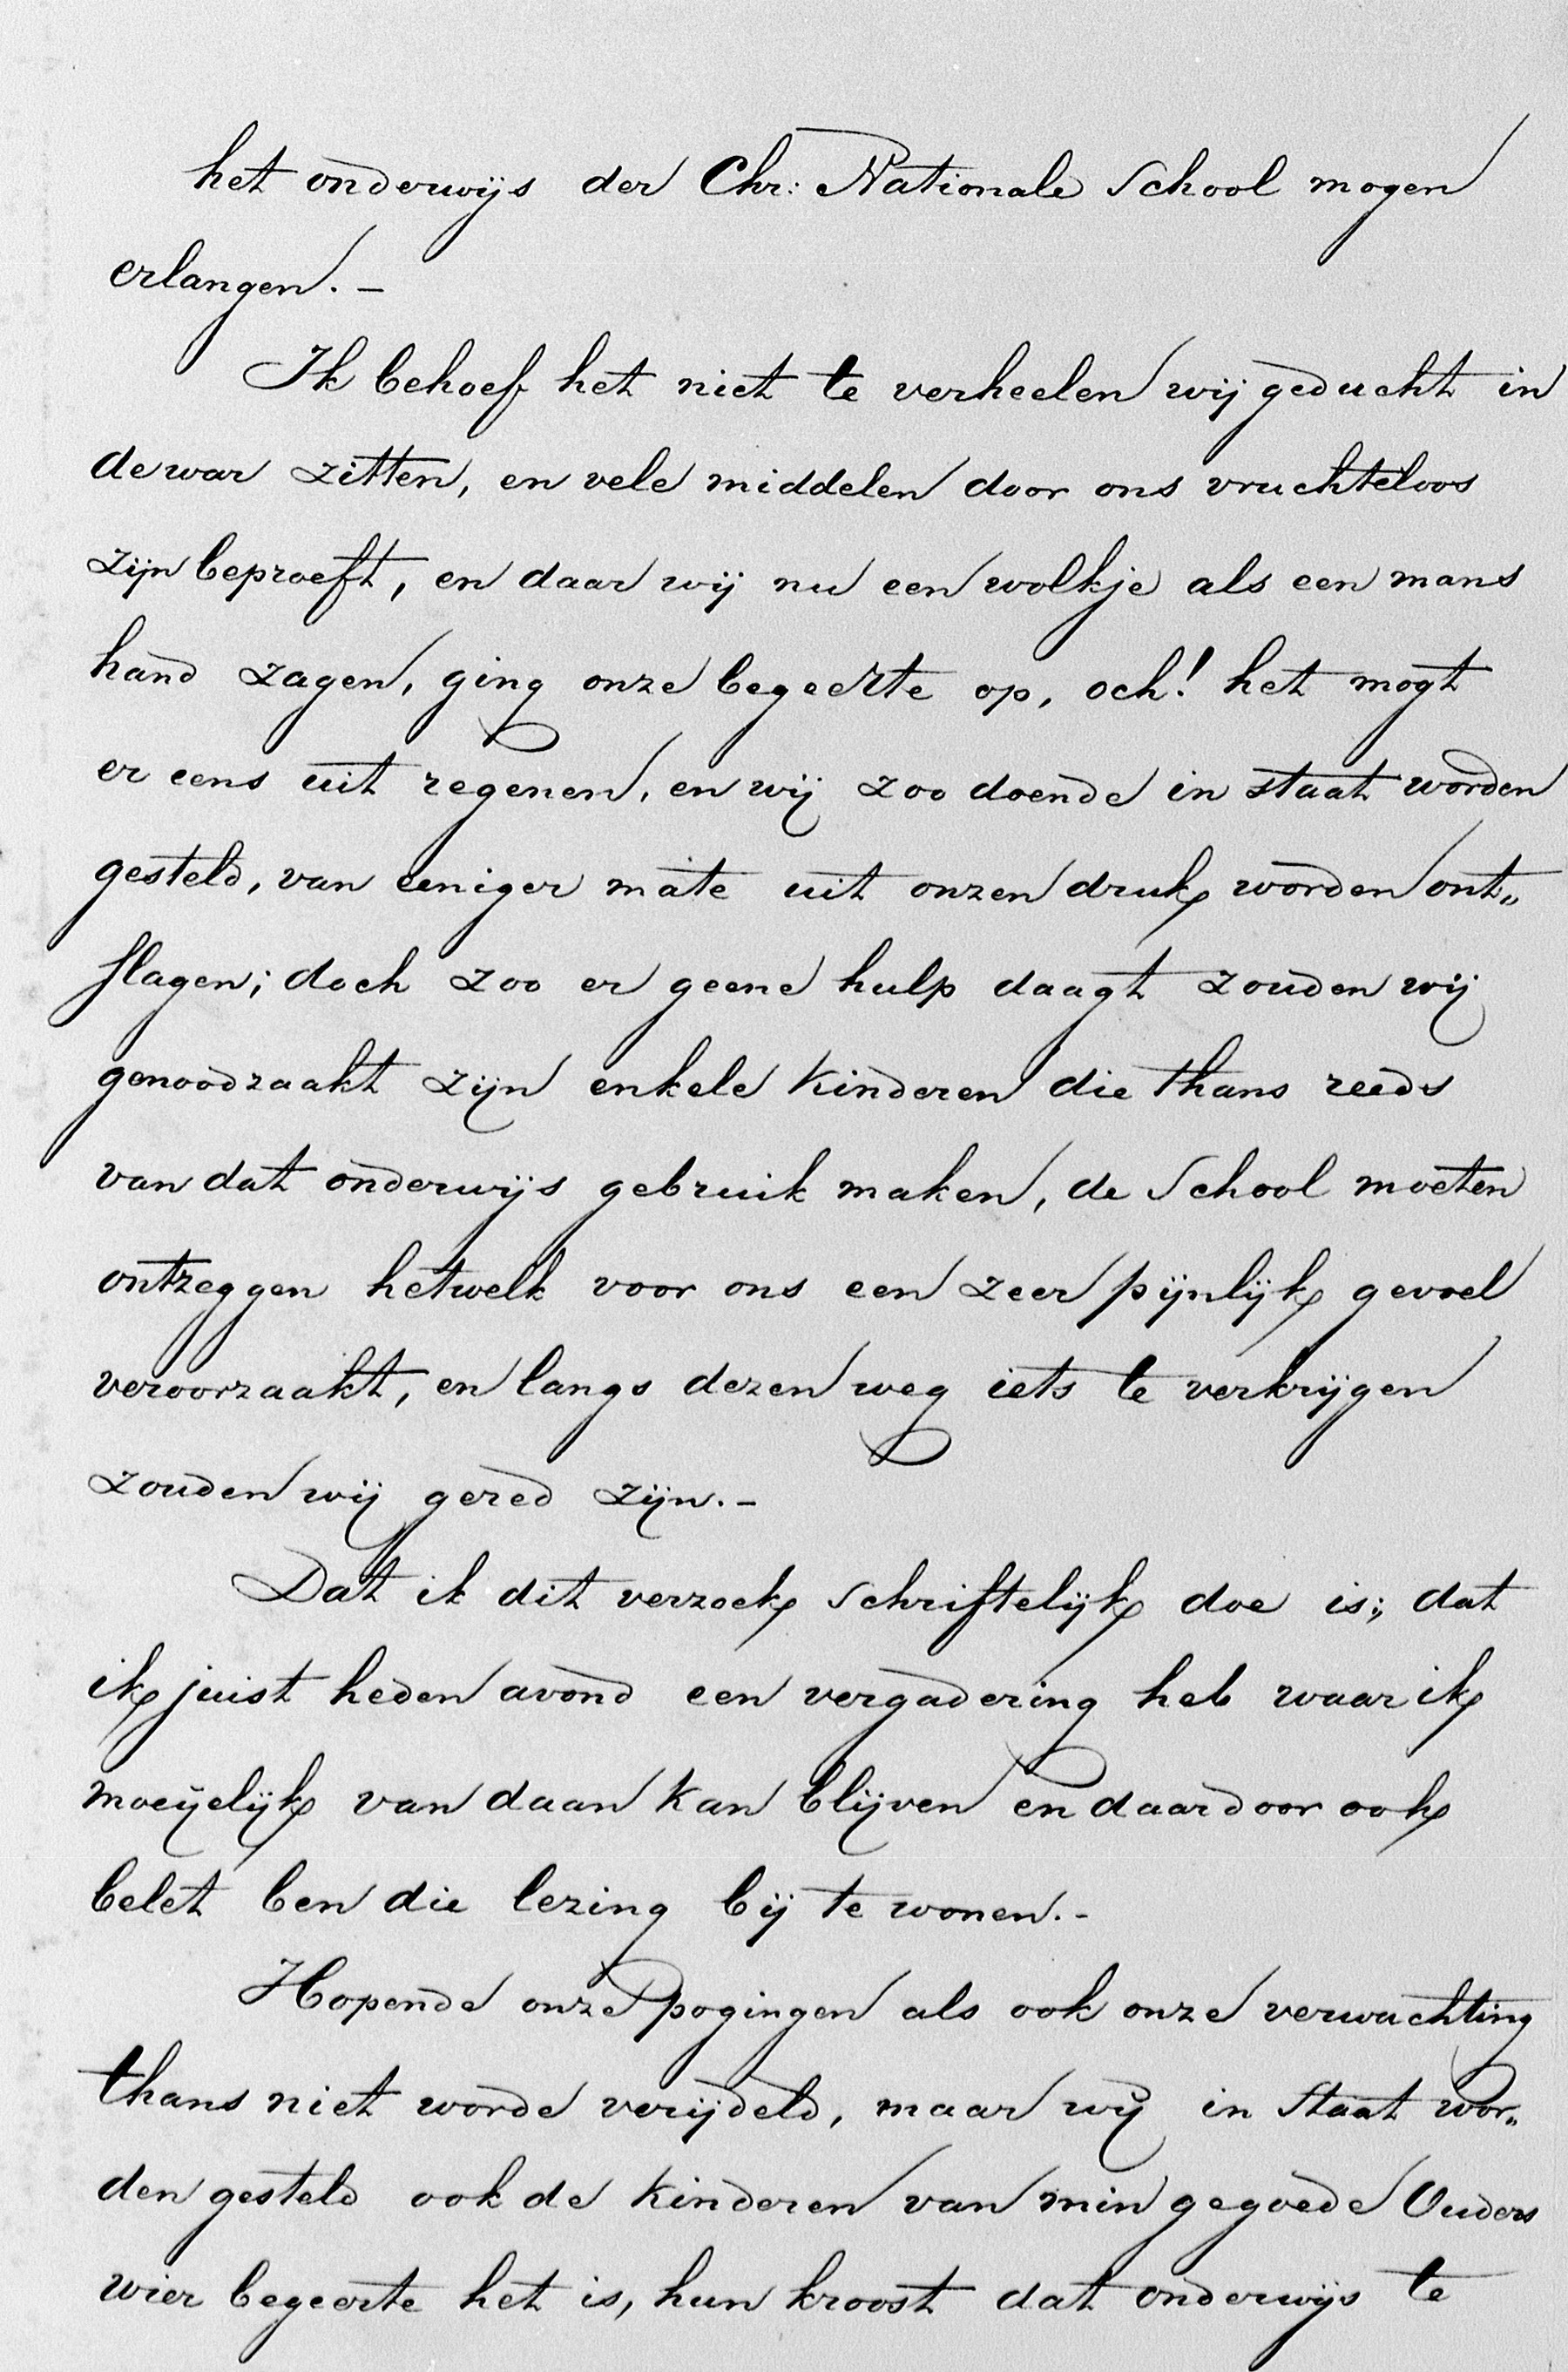 het onderwijs der Chr: Nationale School mogen
erlangen. -
Ik behoef het niet te verheelen wij geducht in
de war zitten, en vele middelen door ons vruchteloos
zijn beproeft, en daar wij nu een wolkje als een mans
hand zagen, ging onze begeerte op, och! het mogt
er eens uit regenen, en wij zoo doende in staat worden
gesteld, van eeniger mate uit onzen druk worden ont„
slagen; doch zoo er geene hulp daagt zouden wij
genoodzaakt zijn enkele kinderen die thans reeds
van dat onderwijs gebruik maken, de School moeten
ontzeggen hetwelk voor ons een zeer pijnlijk gevoel
veroorzaakt, en langs dezen weg iets te verkrijgen
zouden wij gered zijn. -
Dat ik dit verzoek schriftelijk doe is; dat
ik juist heden avond een vergadering heb waar ik
moeijelijk van daan kan blijven en daardoor ook
belet ben die lezing bij te wonen. -
Hopende onze pogingen als ook onze verwachting
thans niet worde verijdeld, maar wij in staat wor„
den gesteld ook de kinderen van min gegoede Ouders
wier begeerte het is, hun kroost dat onderwijs te